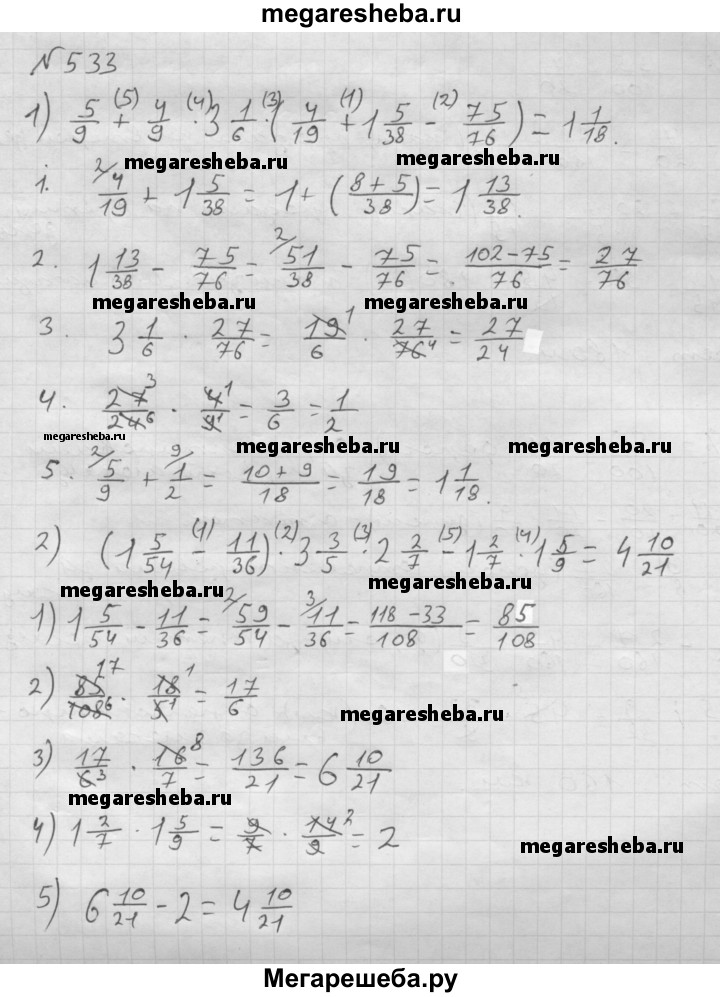 megaresheba.ru
№533
1) 5/9 +(5) 4/9 ·(4) 3 1/6 ·(3) (4/19 +(1) 1 5/38 -(2) 75/76) = 1 1/18.
megaresheba.ru megaresheba.ru
1. 2/ 4/19 + 1 5/38 = 1 + (8+5/38) = 1 13/38.
2. 1 13/38 - 75/76 = 2/ 51/38 - 75/76 = 102-75/76 = 27/76
megaresheba.ru megaresheba.ru
3 3 1/6 · 27/76 = 19 1/6 · 27/76 4 = 27/24
4. 27 3/24 6 · 4 1/9 1 = 3/6 = 1/2
megaresheba.ru megaresheba.ru megaresheba.ru
5. 2/ 5/9 + 9/ 1/2 = 10+9/18 = 19/18 = 1 1/18.
2) (1 5/54 -(1) 11/36) ·(2) 3 3/5 ·(3) 2 2/7 -(5) 1 2/7 ·(4) 1 5/9 = 4 10/21
megaresheba.ru megaresheba.ru
1) 1 5/54 - 11/36 = 2/ 59/54 - 3/ 11/36 = 118-33/108 = 85/108
2) 85 17/108 6 · 18 1/5 1 = 17/6
megaresheba.ru
3) 17/6 3 · 16 8/7 = 136/21 = 6 10/21
megaresheba.ru
4) 1 2/7 · 1 5/9 = 9/7 · 14 2/9 = 2
megaresheba.ru
5) 6 10/21 - 2 = 4 10/21
Мегарешеба.ру